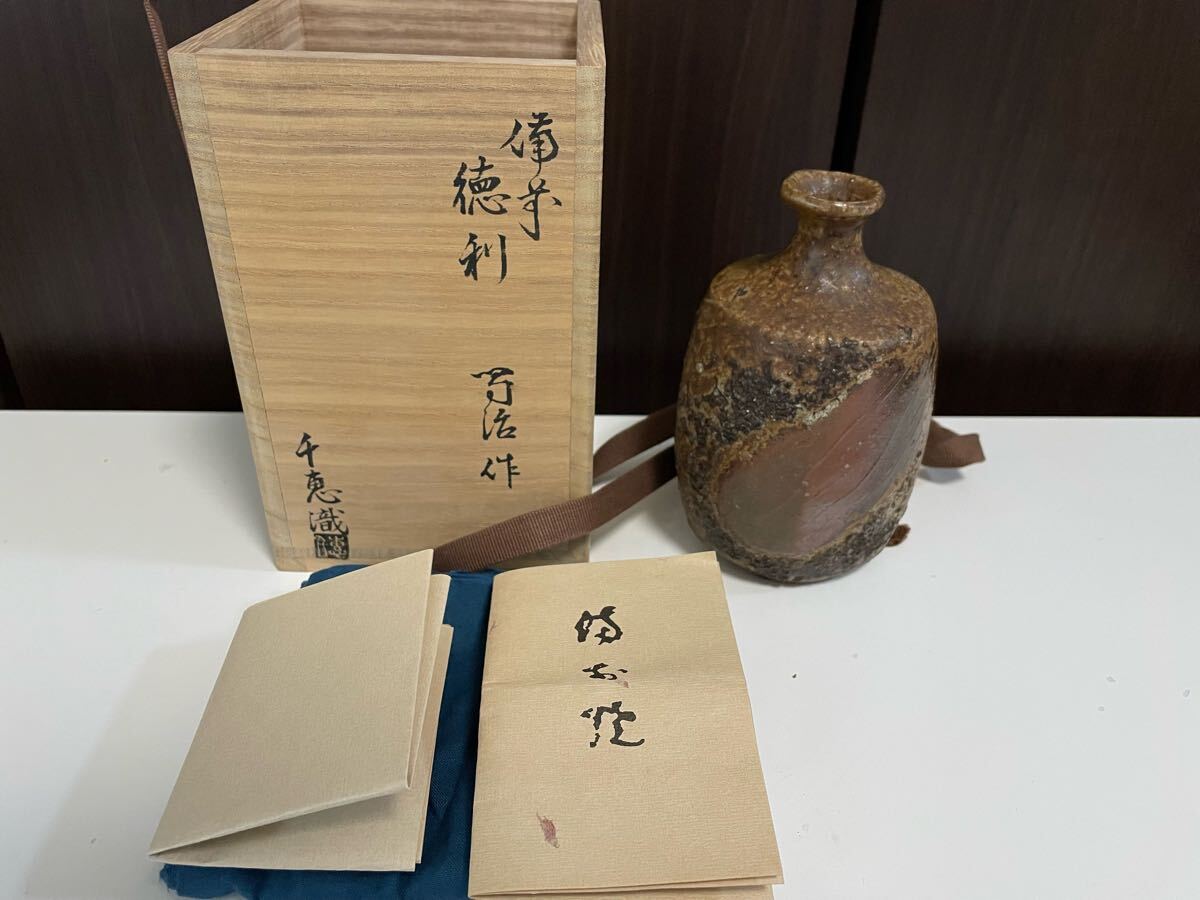 備前
徳利
千恵識
備前焼